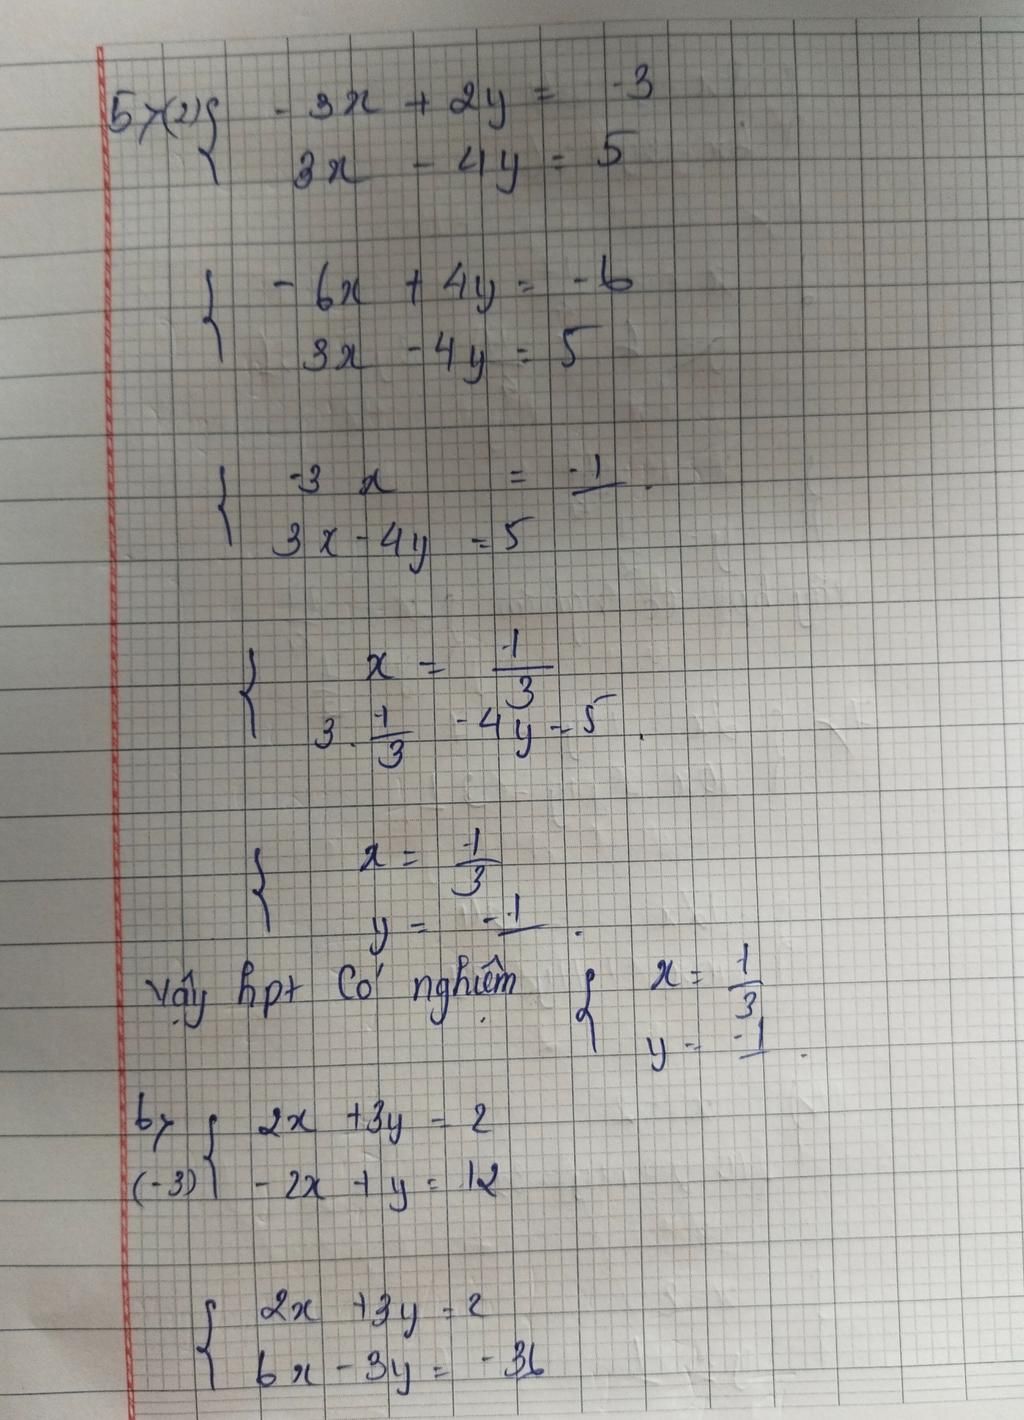 5, (2) { - 3x + 2y = -3
3x - 4y = 5
{ - 6x + 4y = -6
3x - 4y = 5
{ -3 x = -1.
3x - 4y = 5
{ x = 1/3
3. 1/3 - 4y = 5.
{ x = 1/3
y = -1.
Vậy hpt Có nghiệm { x = 1/3
y = -1.
6, { 2x + 3y = 2
(-3) - 2x + y = 12
{ 2x + 3y = 2
6x - 3y = -36